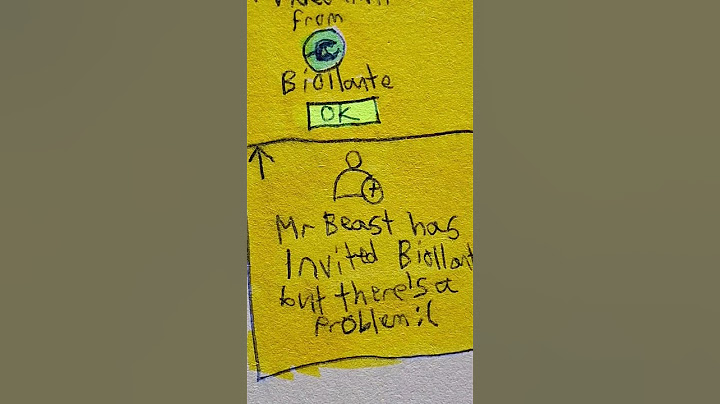 from
Biollante
OK
Mr Beast has
Invited Biollant
but there's a
problem :(